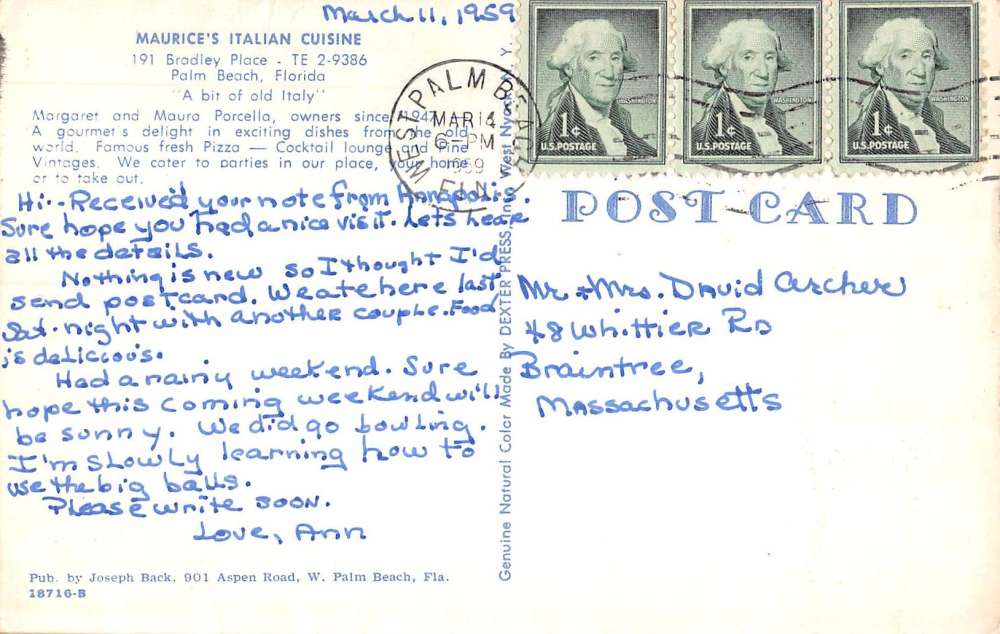 March 11, 1959
MAURICE'S ITALIAN CUISINE
191 Bradley Place - TE 2-9386
Palm Beach, Florida
"A bit of old Italy"
Margaret and Mauro Porcella, owners since 1947.
A gourmet's delight in exciting dishes from the old
world. Famous fresh Pizza — Cocktail lounge and Fine
Vintages. We cater to parties in our place, your home
or to take out.
Hi-- Received your note from Annapolis.
Sure hope you had a nice visit. Lets hear
all the details.
Nothing is new so I thought I'd
send postcard. We ate here last
Sat. night with another couple. Food
is delicious.
Had a rainy weekend. Sure
hope this coming weekend will
be sunny. We did go bowling.
I'm slowly learning how to
use the big balls.
Please write soon.
Love, Ann
Pub. by Joseph Back, 901 Aspen Road, W. Palm Beach, Fla.
18716-B
Genuine Natural Color Made By DEXTER PRESS, Inc. West Nyack, N. Y.
WEST PALM BEACH
MAR 14
PM
1959
FLA.
WASHINGTON
1¢
U.S. POSTAGE
WASHINGTON
1¢
U.S. POSTAGE
WASHINGTON
1¢
U.S. POSTAGE
POST CARD
Mr. & Mrs. David Archer
48 Whittier RD
Braintree,
Massachusetts